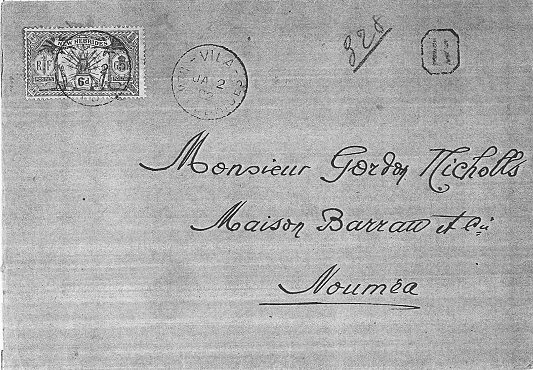 NEW HEBRIDES
RF
6d
VILA
JA 2
328
Monsieur Gordon Nicholls
Maison Barrau et Cie
Nouméa